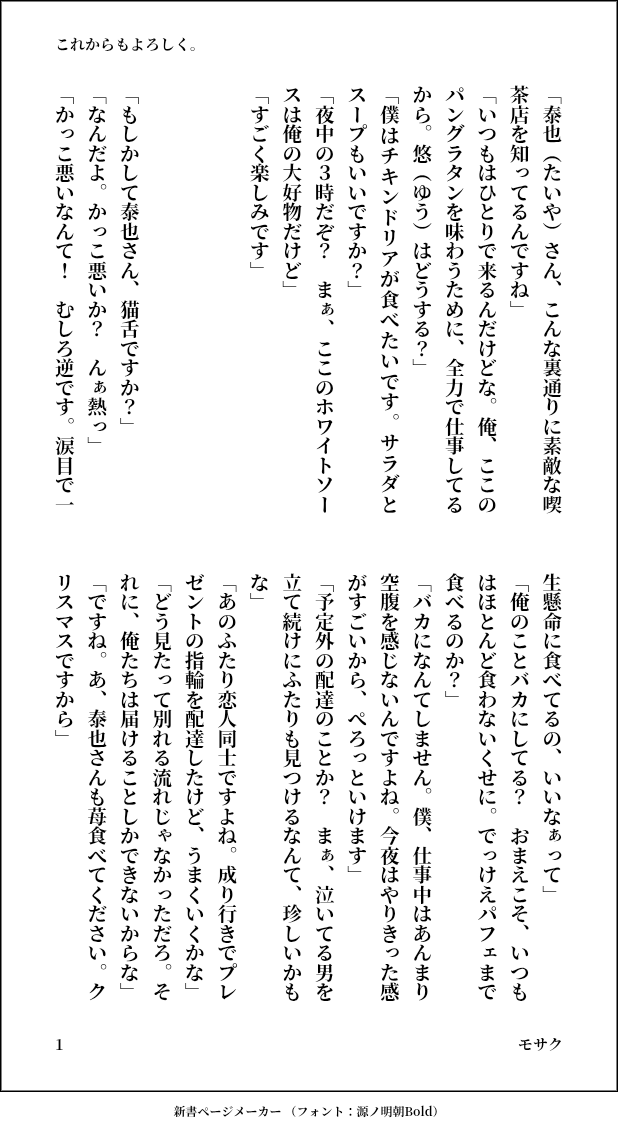 これからもよろしく。
「泰也（たいや）さん、こんな裏通りに素敵な喫
茶店を知ってるんですね」
「いつもはひとりで来るんだけどな。俺、ここの
パングラタンを味わうために、全力で仕事してる
から。悠（ゆう）はどうする？」
「僕はチキンドリアが食べたいです。サラダと
スープもいいですか？」
「夜中の３時だぞ？　まぁ、ここのホワイトソー
スは俺の大好物だけど」
「すごく楽しみです」
「もしかして泰也さん、猫舌ですか？」
「なんだよ。かっこ悪いか？　んぁ熱っ」
「かっこ悪いなんて！　むしろ逆です。涙目で一
生懸命に食べてるの、いいなぁって」
「俺のことバカにしてる？　おまえこそ、いつも
はほとんど食わないくせに。でっけえパフェまで
食べるのか？」
「バカになんてしません。僕、仕事中はあんまり
空腹を感じないんですよね。今夜はやりきった感
がすごいから、ぺろっといけます」
「予定外の配達のことか？　まぁ、泣いてる男を
立て続けにふたりも見つけるなんて、珍しいかも
な」
「あのふたり恋人同士ですよね。成り行きでプレ
ゼントの指輪を配達したけど、うまくいくかな」
「どう見たって別れる流れじゃなかっただろ。そ
れに、俺たちは届けることしかできないからな」
「ですね。あ、泰也さんも苺食べてください。ク
リスマスですから」
モサク
1
新書ページメーカー（フォント：源ノ明朝Bold）